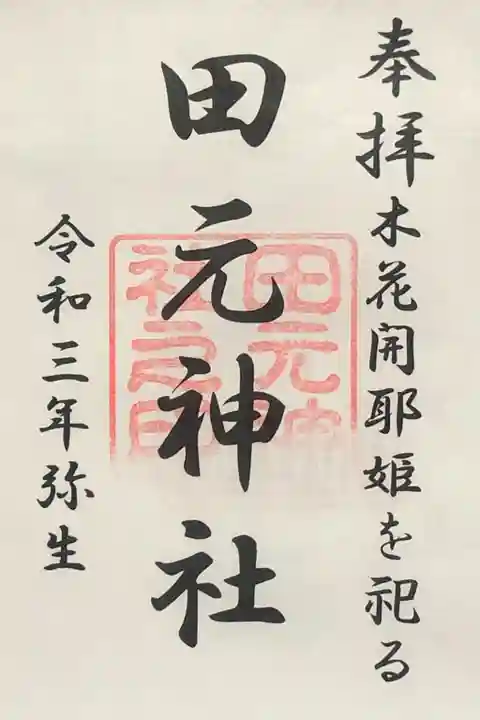 奉拝 木花開耶姫を祀る
田元神社
田元神
社之印
令和三年弥生